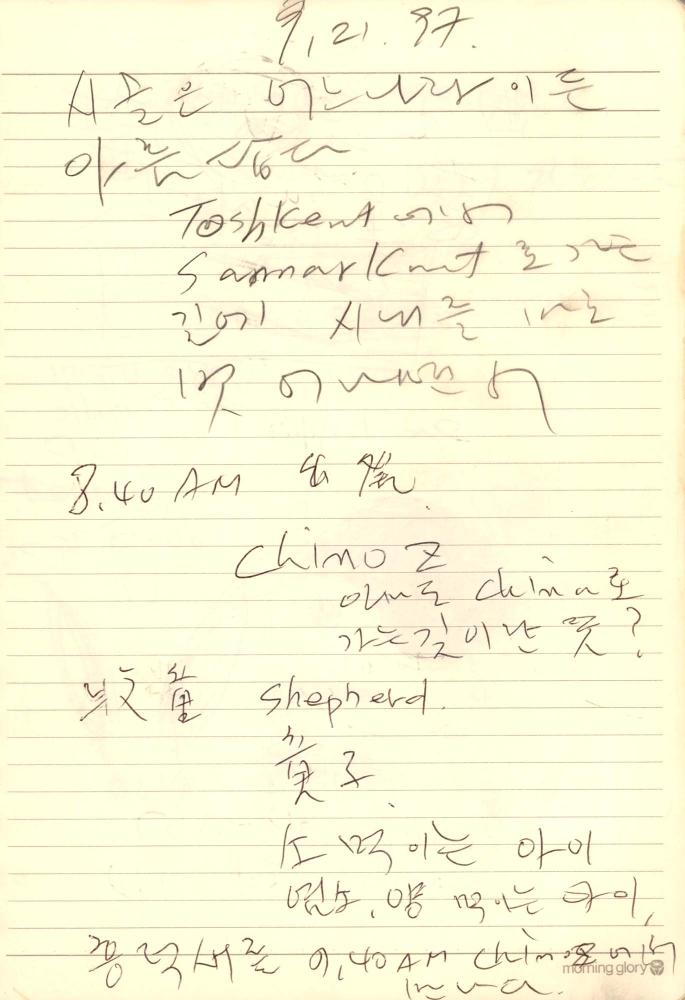 9, 21. 97.
시골은 어느나라이든
아름답다
Toshkent 에서
Samarkant 로 가는
길에 시내를
벗어나면서
8.40 AM 出發.
Chinoz
아마도 China로
가는길이란 뜻?
牧童 Shepherd.
童子
소 먹이는 아이
염소, 양 먹이는 아이,
9,40 AM Chinoz에서
만나다.
morning glory